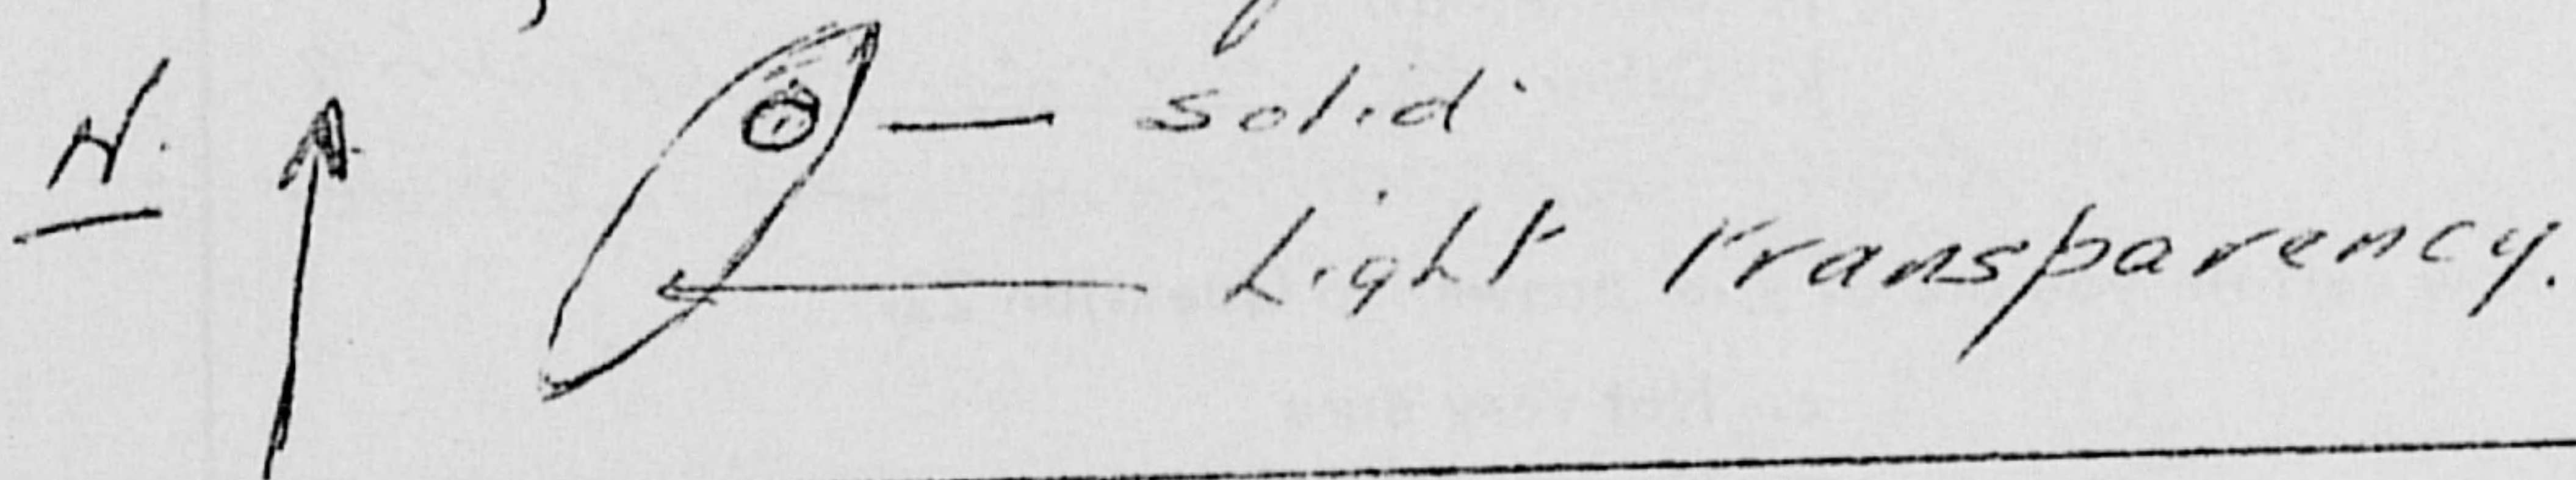 N.
solid
Light transparency.